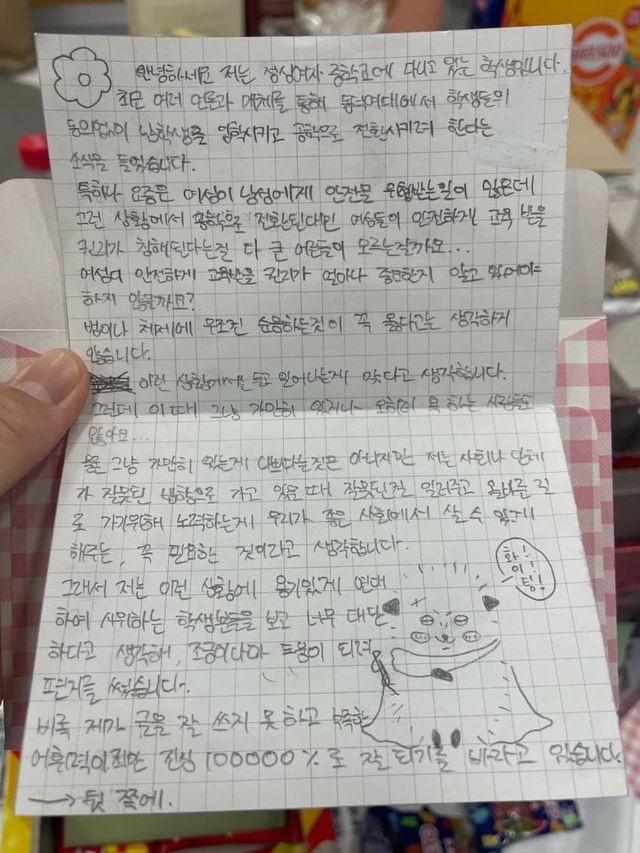 안녕하세요 저는 정성여자 중학교에 다니고 있는 학생입니다.
최근 여러 언론과 매체를 통해 동덕여대에서 학생들의
동의없이 남학생을 입학시키고 공학으로 전환시키려 한다는
소식을 들었습니다.
특히나 요즘은 여성이 남성에게 안전을 위협받는일이 많은데
그런 상황에서 공학으로 전환된다면 여성들의 안전하게 교육 받을
권리가 침해된다는걸 다 큰 어른들이 모르는걸까요...
여성이 안전하게 교육받을 권리가 얼마나 중요한지 알고 있어야
하지 않을까요?
법이나 체제에 무조건 순응하는것이 꼭 옳다고는 생각하지
않습니다.
이런 상황에서는 들고 일어나는게 맞다고 생각합니다.
그런데 이때 그냥 가만히 있거나 오히려 욕 하는 사람들도
많아요...
물론 그냥 가만히 있는게 나쁘다는것은 아니지만 저는 사회나 단체
가 잘못된 방향으로 가고 있을 때 잘못된걸 알려주고 올바른 길
로 가기위해 노력하는게 우리가 좋은 사회에서 살 수 있게
해주는, 꼭 필요한 것이라고 생각합니다.
그래서 저는 이런 상황에 용기있게 연대
하여 시위하는 학생분들을 보고 너무 대단
하다고 생각해, 조금이나마 도움이 되려
편지를 썼습니다.
비록 제가 글을 잘 쓰지 못 하고 부족한
어휘력이지만 진심 100000%로 잘 되기를 바라고 있습니다.
→ 뒷 쪽에.
화!
이!
팅!